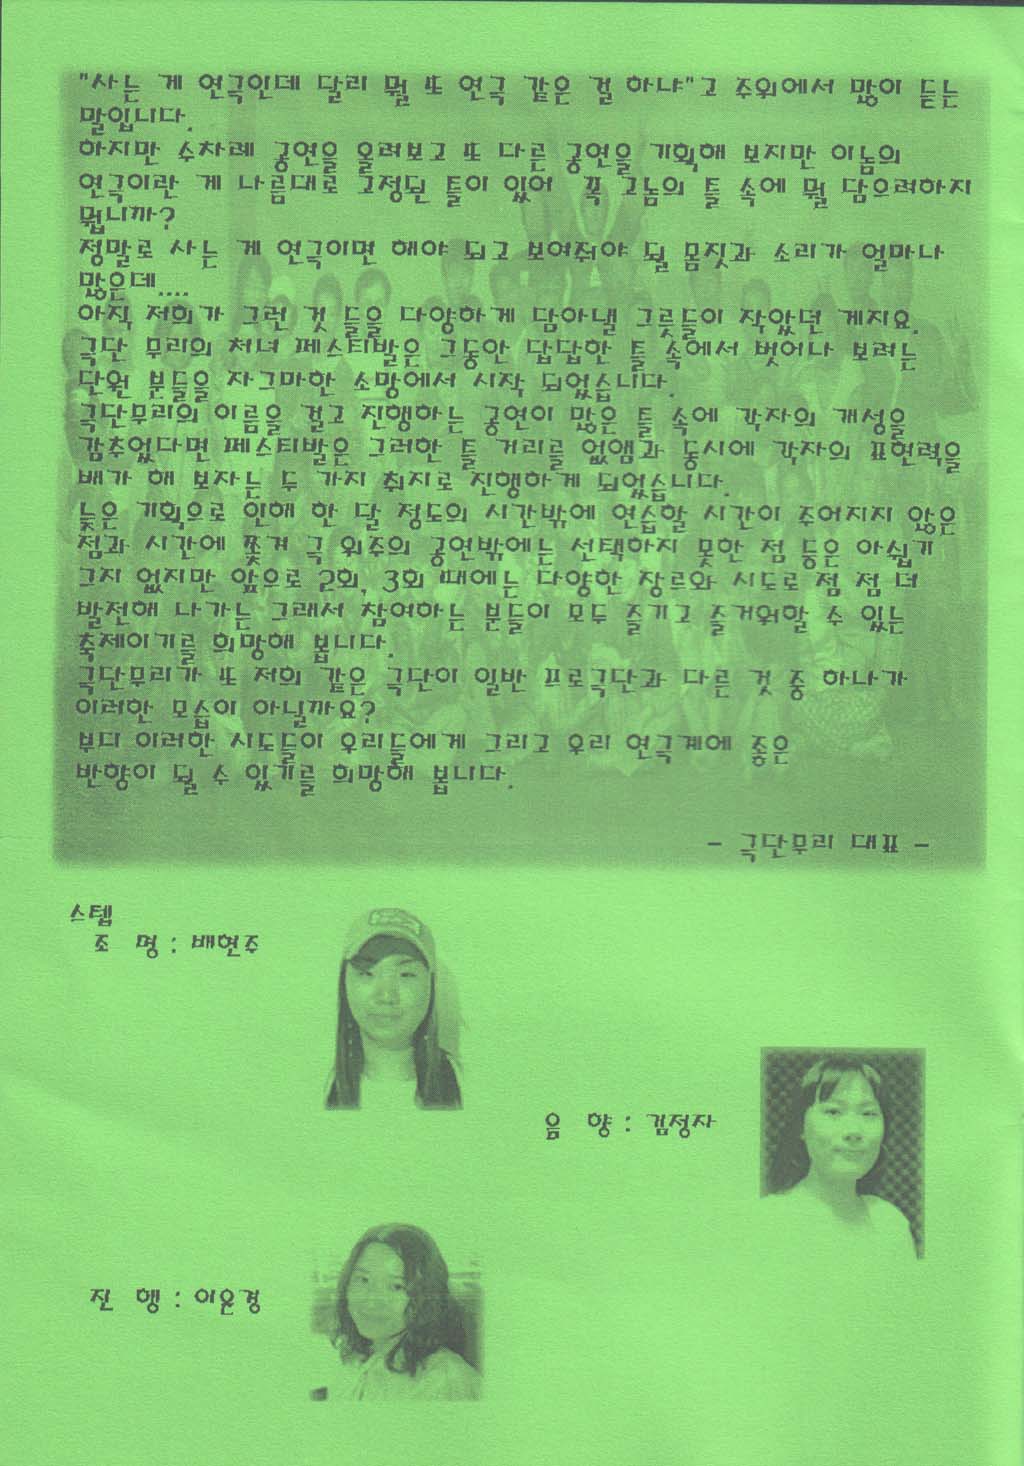 "사는 게 연극인데 달리 뭘 또 연극 같은 걸 하냐"고 주위에서 많이 듣는
말입니다.
하지만 수차례 공연을 올려보고 또 다른 공연을 기획해 보지만 이놈의
연극이란 게 나름대로 고정된 틀이 있어 꼭 그놈의 틀 속에 뭘 담으려하지
뭡니까?
정말로 사는 게 연극이면 해야 되고 보여줘야 될 몸짓과 소리가 얼마나
많은데....
아직 저희가 그런 것 들을 다양하게 담아낼 그릇들이 작았던 게지요.
극단 무리의 처녀 페스티발은 그동안 답답한 틀 속에서 벗어나 보려는
단원 분들을 자그마한 소망에서 시작 되었습니다.
극단무리의 이름을 걸고 진행하는 공연이 많은 틀 속에 각자의 개성을
감추었다면 페스티발은 그러한 틀 거리를 없앰과 동시에 각자의 표현력을
배가 해 보자는 두 가지 취지로 진행하게 되었습니다.
늦은 기획으로 인해 한 달 정도의 시간밖에 연습할 시간이 주어지지 않은
점과 시간에 쫓겨 극 위주의 공연밖에는 선택하지 못한 점 등은 아쉽기
그지 없지만 앞으로 2회, 3회 때에는 다양한 장르와 시도로 점 점 더
발전해 나가는 그래서 참여하는 분들이 모두 즐기고 즐거워할 수 있는
축제이기를 희망해 봅니다.
극단무리가 또 저희 같은 극단이 일반 프로극단과 다른 것 중 하나가
이러한 모습이 아닐까요?
부디 이러한 시도들이 우리들에게 그리고 우리 연극계에 좋은
반향이 될 수 있기를 희망해 봅니다.
- 극단무리 대표 -
스텝
조 명 : 배현주
음 향 : 김정자
진 행 : 이윤경